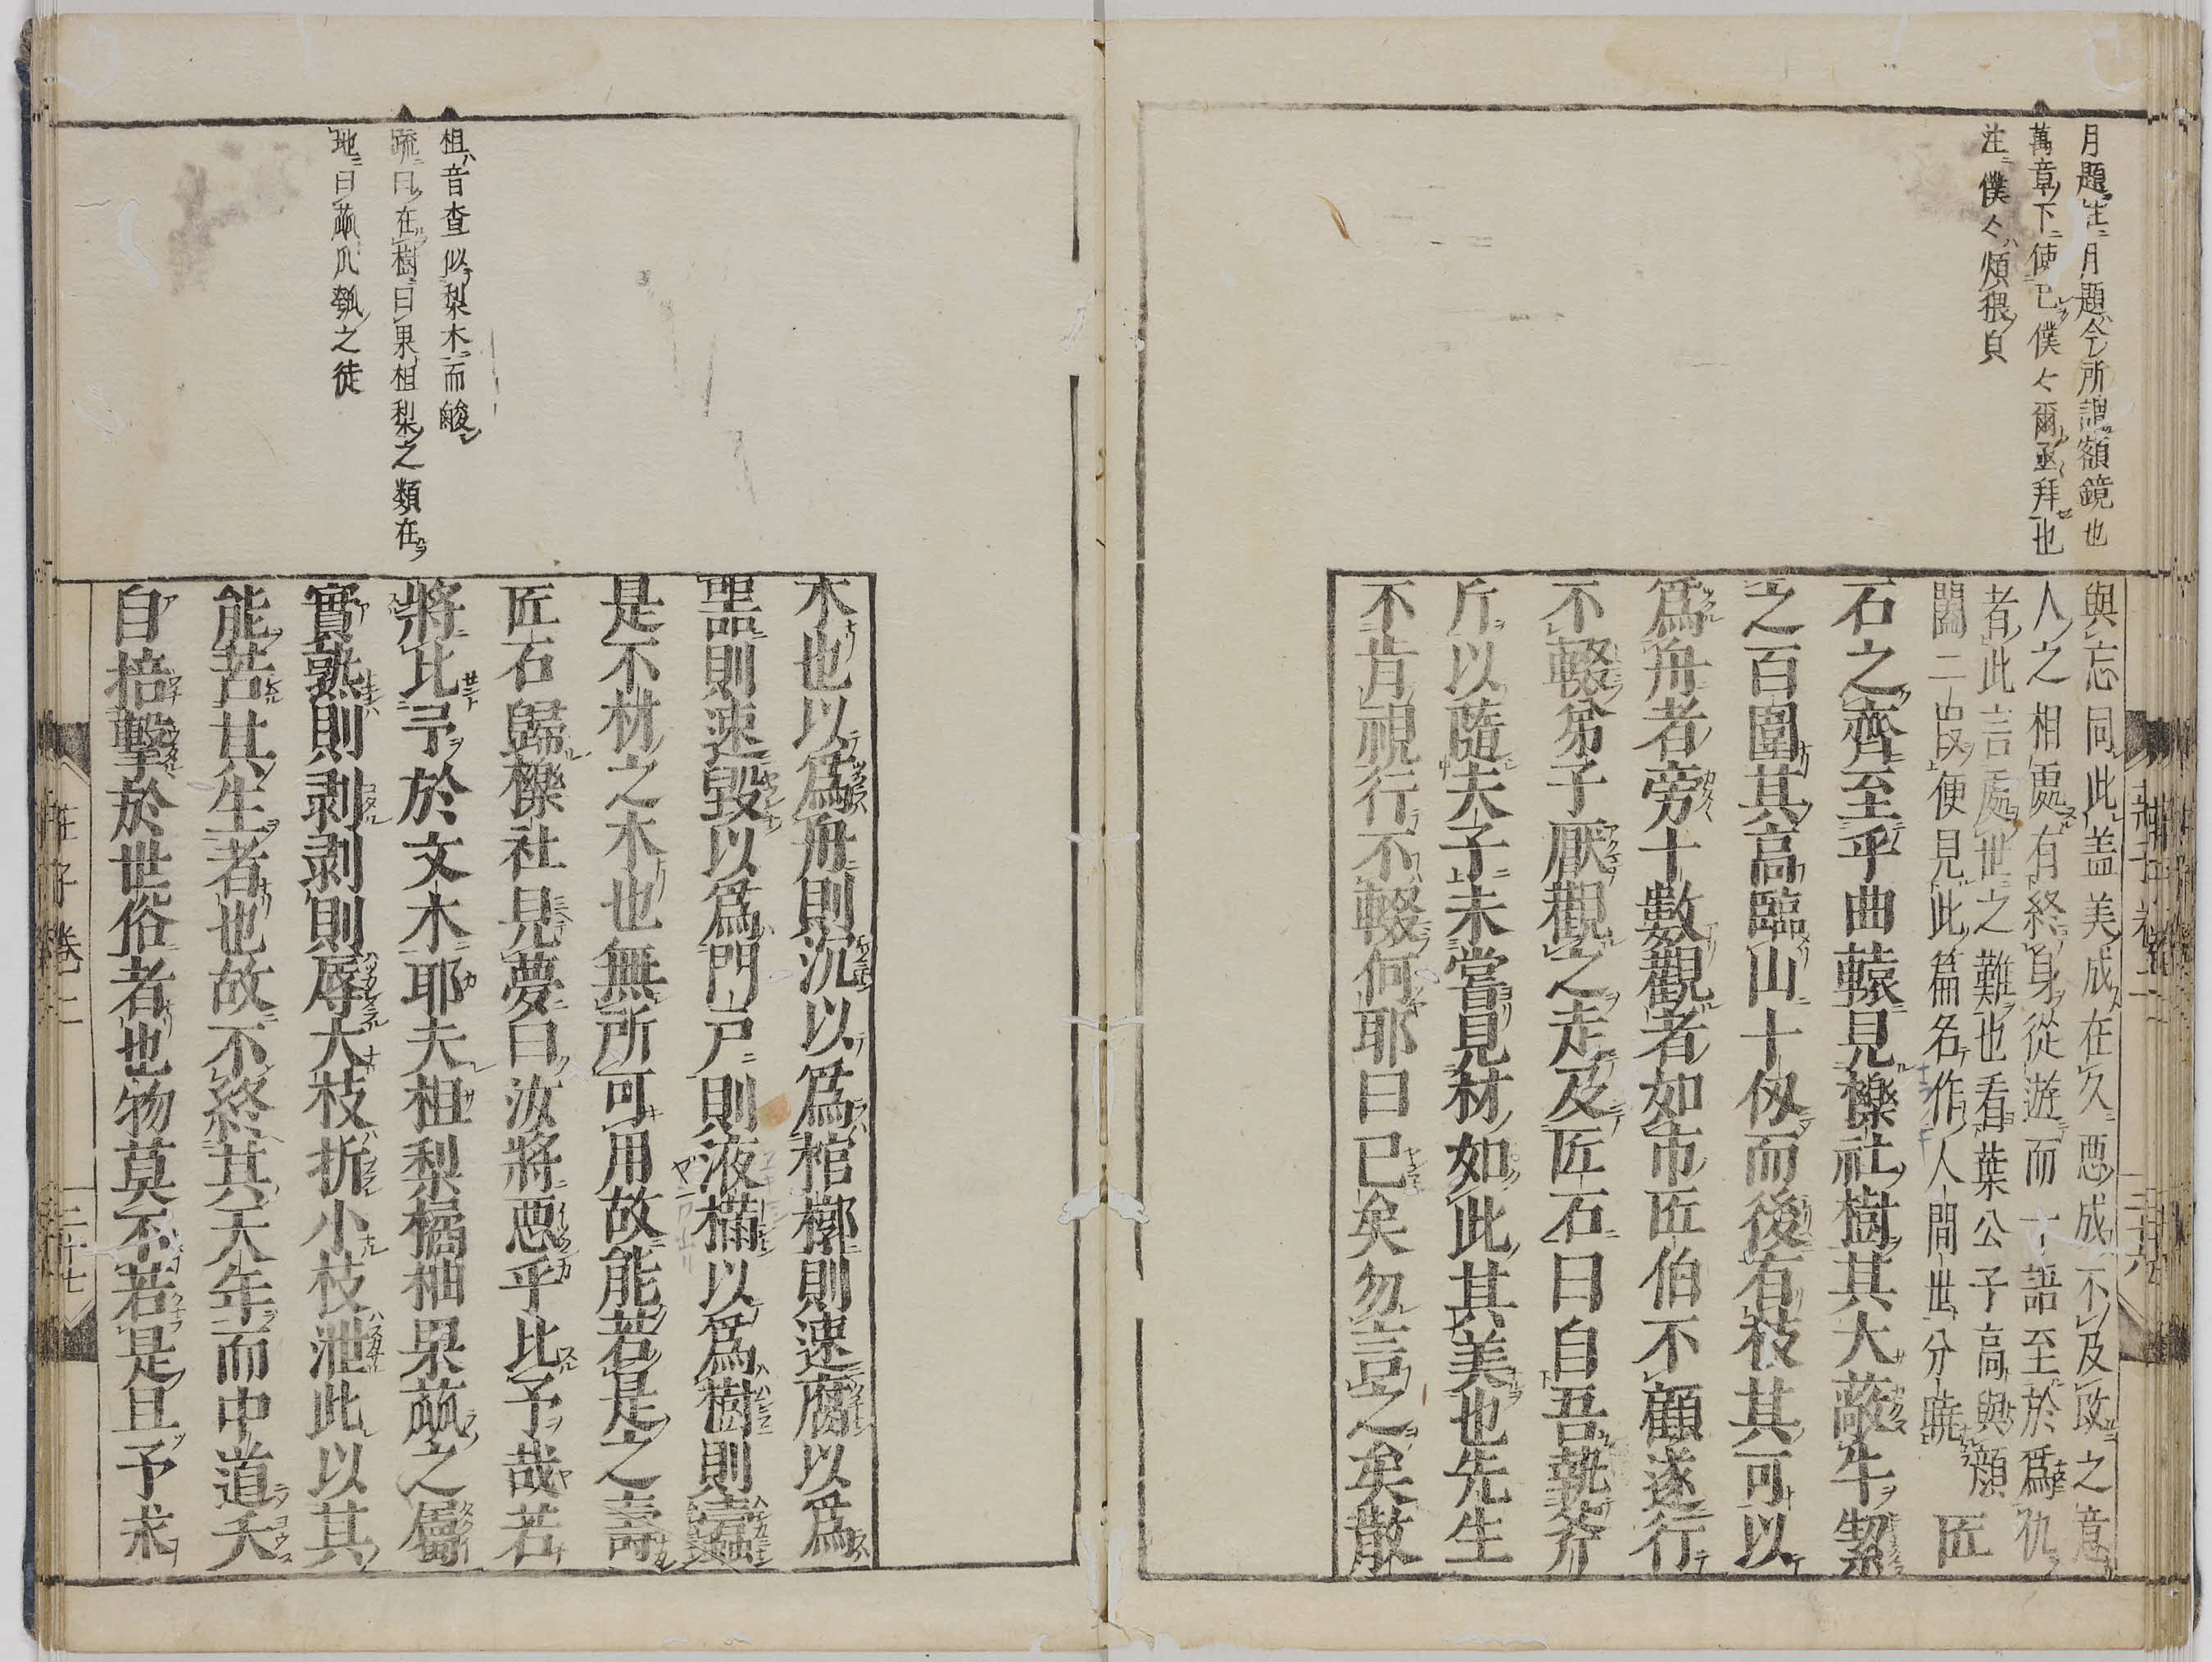 月題注月題今所謂額鏡也
萬章下使已僕々爾亟拜也
注僕々煩猥貌
與忘同此盖美成在久惡成不及改之意
人之相處有終身從遊而一語至於爲仇
者此言處世之難也看葉公子高與顔
闔二段便見此篇名作人間世分暁 匠
石之齊至乎曲轅見櫟社樹其大蔽牛絜
之百圍其高臨山十仭而後有枝其可以
爲舟者旁十數觀者如市匠伯不顧遂行
不輟弟子厭觀之走及匠石曰自吾執斧
斤以隨夫子未嘗見材如此其美也先生
不肯視行不輟何耶曰已矣勿言之矣散
莊子卷二
二十六
柤音査似梨木而酸
疏曰在樹曰果柤梨之類在
地曰蓏瓜瓠之徒
木也以爲舟則沉以爲棺槨則速腐以爲
噐則速毀以爲門戸則液樠以爲樹則蠧
是不材之木也無所可用故能若是之壽
匠石歸櫟社見夢曰汝將惡乎比予哉若
將比予於文木耶夫柤梨橘柚果蓏之屬
實熟則剥剥則辱大枝折小枝泄此以其
能苦其生者也故不終其天年而中道夭
自掊擊於世俗者也物莫不若是且予求
莊子卷二
二十七